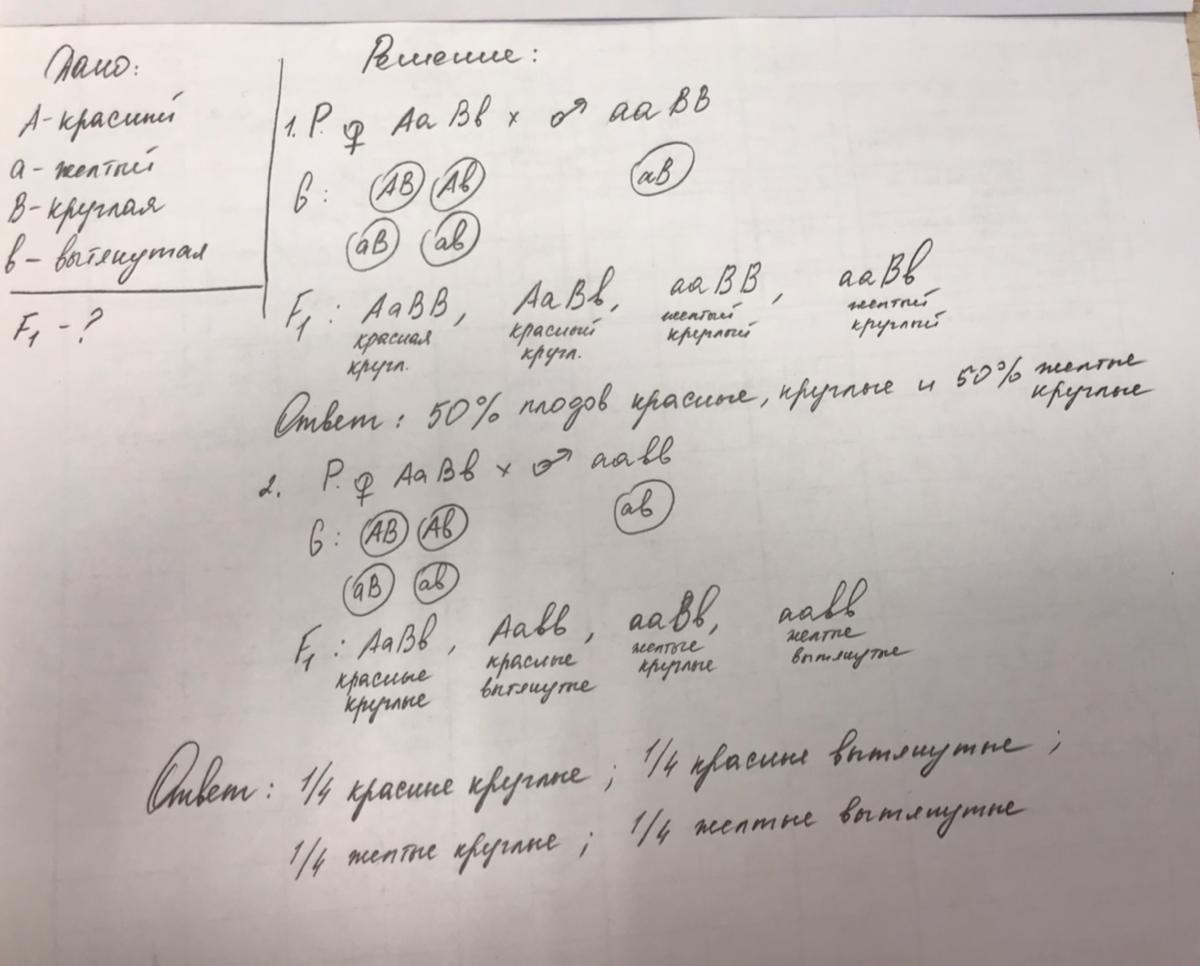 Дано:
А - красный
а - желтый
В - круглая
в - вытянутая
F₁ - ?
Решение:
1. Р. ♀ АаВв × ♂ ааВВ
G: АВ Ав аВ
аВ ав
F₁: АаВВ, АаВв, ааВВ, ааВв
красная красный желтый желтый
кругл. кругл. круглый круглый
Ответ: 50% плодов красные, круглые и 50% желтые
круглые
2. Р. ♀ АаВв × ♂ аавв
G: АВ Ав ав
аВ ав
F₁: АаВв, Аавв, ааВв, аавв
красные красные желтые желтые
круглые вытянутые круглые вытянутые
Ответ: 1/4 красные круглые; 1/4 красные вытянутые;
1/4 желтые круглые; 1/4 желтые вытянутые